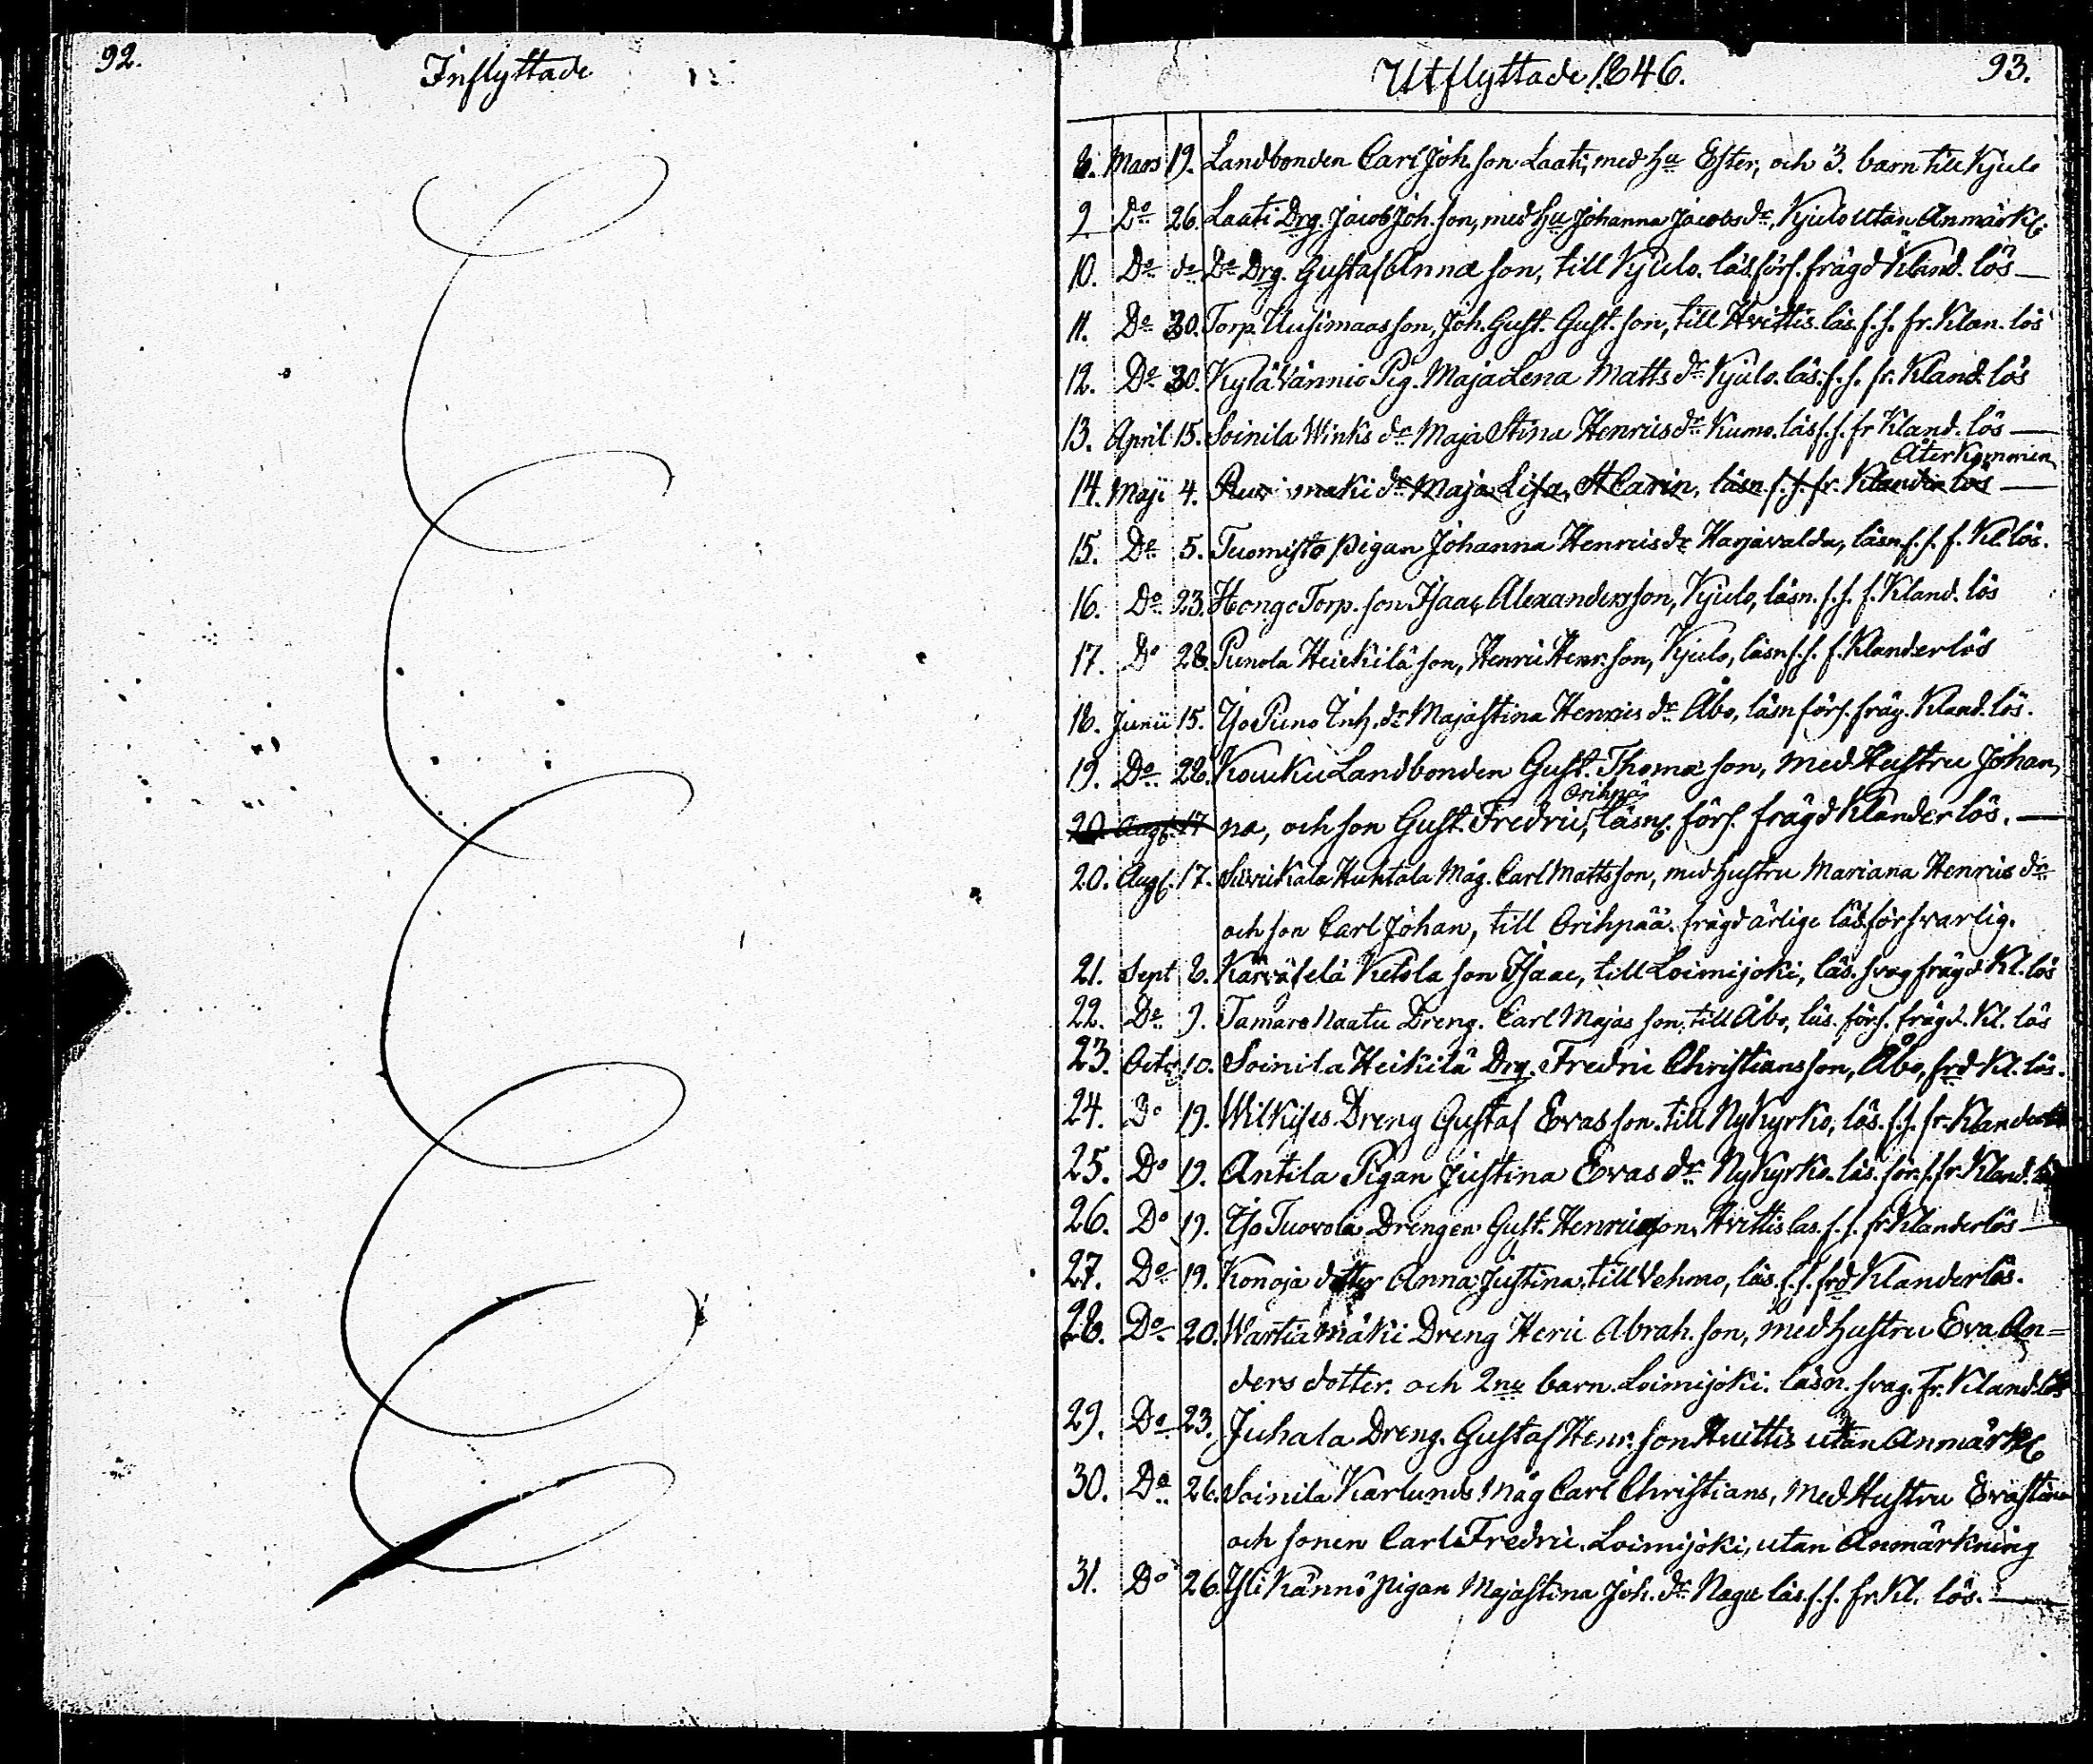 92.
Inflyttade
Utflyttade 1846.
93.
8. Mars 19. Landbonden Carl Joh. son Laati, med hu Ester, och 3. barn till Kjulo
9. Do 26. Laati Drg. Jacob Joh. son, med hu Johanna Jacobs dr, Kjulo utan Anmärk.
10. Do do Do Drg. Gustaf Annæ son, till Kjulo. läs. förs. frägd Kland. lös —
11. Do 30. Torp. Uusimaas son, Joh. Gust. Gust. son, till Hvittis. läs. f. s. fr. Klan. lös
12. Do 30. Kylä Vännio Pig. Maja Lena Matts dr Kjulo. läs. f. s. fr. Kland. lös
13. April 15. Soinila Winks dr Maja Stina Henrics dr Kumo. läs f. s. fr Kland. lös —
Återkommen
14. Maji 4. maki dr Maja Lisa, St Carin, läsn. f. s. fr. Klander lös —
15. Do 5. Tuomisto pigan Johanna Henrics dr Harjavalda, läsn. f. s. f. Kl. lös.
16. Do 23. Hongo Torp. son Isaac Alexandersson, Kjulo, läsn. f. s. f. Kland. lös
17. Do 28. Punola Heickilä son, Henric Henr. son, Kjulo, läsn f. s. f. Klanderlös
18. Junii 15. Iso Puno Inh. dr Maja Stina Henrics dr Åbo, läsn förs. fräg. Kland. lös.
19. Do 28. Kouku Landbonden Gust. Thomæ son, med Hustru Johan,
Orihpää
20. Augt. 17 na, och son Gust. Fredric, läsn. förs. frägd Klanderlös. —
20. Augt. 17. Huhtala Måg. Carl Mattsson, med hustru Mariana Henrics dr
och son Carl Johan, till Orihpää. frägd ärlige läs. försvarlig.
21. Sept 8. Kärväselä Ketola son Isaac, till Loimijoki, läs. svag frägd Kl. lös
22. Do 9. Tamare Naatu Dreng. Carl Majas son, till Åbo, läs. förs. frägd. Kl. lös
23. Octo 10. Soinila Heikilä Drg. Fredric Christiansson, Åbo, frd Kl. lös.
24. Do 19. Wilkises Dreng Gustaf Evas son. till NyKyrko, läs. f. s. fr. Klander
25. Do 19. Antila Pigan Justina Evas dr NyKyrko. läs. för. s. fr. Kland. lös
26. Do 19. Iso Tuovola Drengen Gust. Henricsson, Hvittis las. f. s. fr. Klanderlös —
27. Do 19. Konoja dotter Anna Justina, till Vehmo, läs. f. s. frd Klanderlös.
28. Do 20. Wartiamäki Dreng Heric Abrah. son, med hustru Eva An=
ders dotter. och 2ne barn. Loimijoki. läsn. svag. fr. Kland. lös
29. Do 23. Juhala Dreng. Gustaf Henr. son Huittis utan Anmärk
30. Do 26. Soinila Karlunds Måg Carl Christians, Med Hustru Eva Stina
och sonen Carl Fredric. Loimijoki, utan Anmärkning
31. Do 26. Yli Kännö pigan Maja Stina Joh. dr Nagu läs. f. s. fr. Kl. lös. —